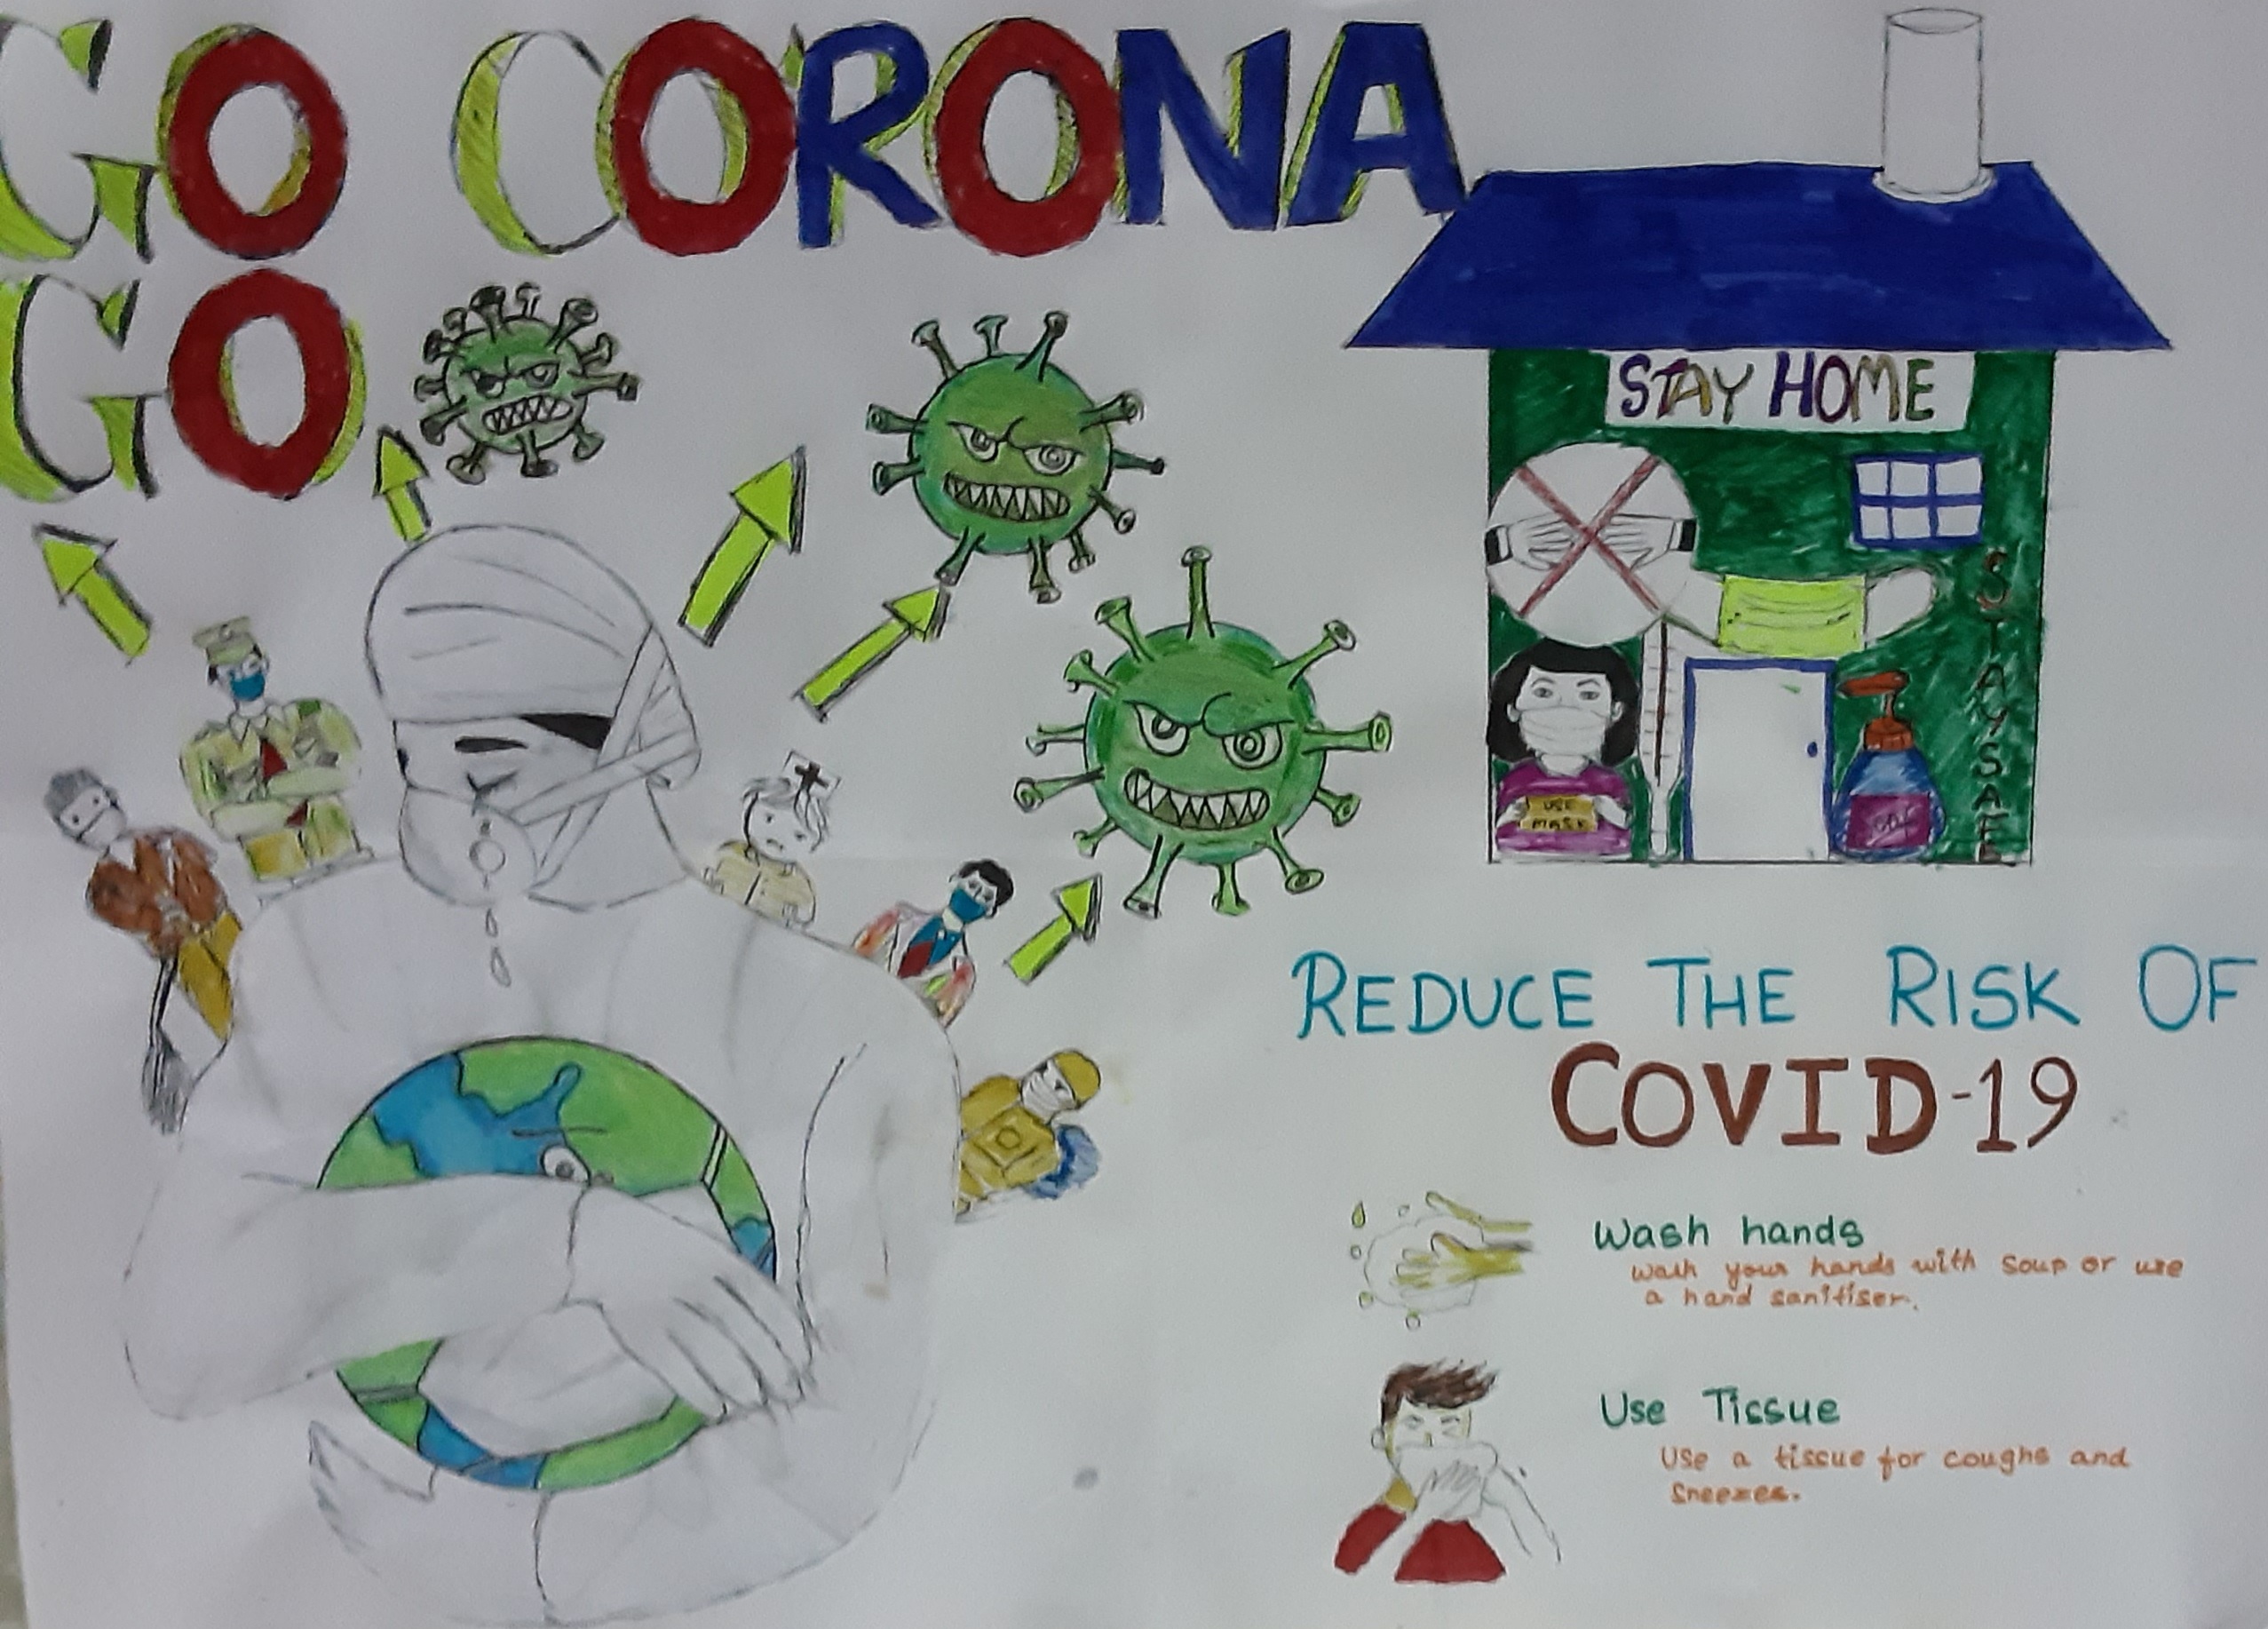 GO CORONA
GO
STAY HOME
STAY SAFE
USE
MASK
REDUCE THE RISK OF
COVID-19
Wash hands
Wash your hands with soup or use
a hand sanitiser.
Use Tissue
Use a tissue for coughs and
Sneezes.